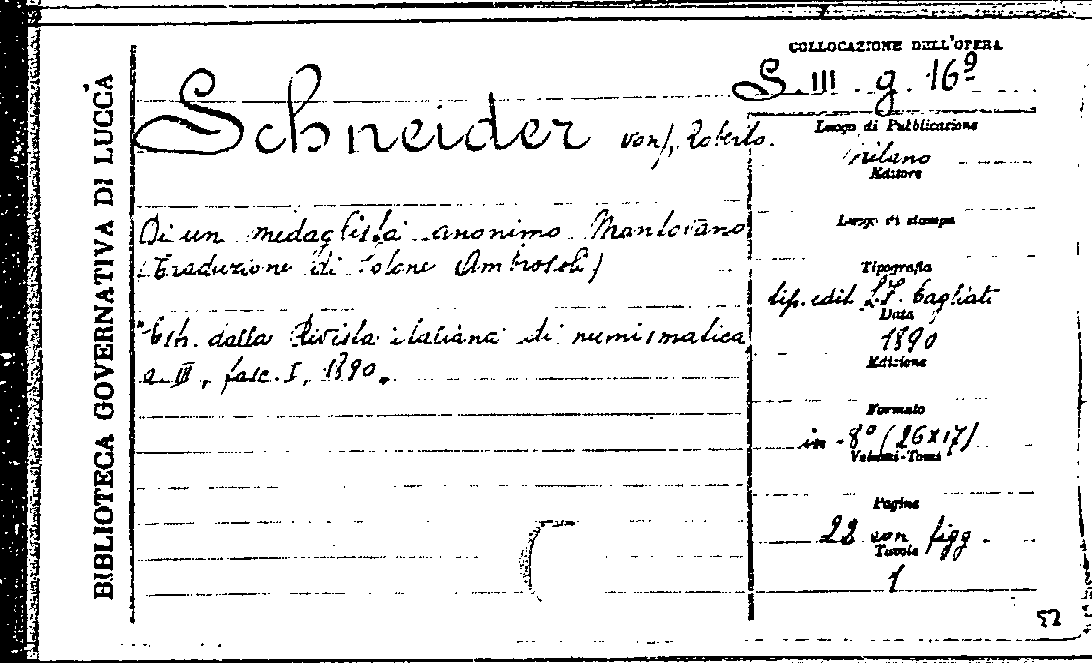 BIBLIOTECA GOVERNATIVA DI LUCCA
COLLOCAZIONE DELL'OPERA
S. III g. 16º
Schneider von, Roberto.
Di un medaglista anonimo Mantovano
(Traduzione di Solone Ambrosoli)
"Estr. dalla Rivista italiana di numismatica
a. III, fasc. I, 1890.
Luogo di Pubblicazione
Milano
Editore
Luogo di stampa
Tipografia
tip. edit. L.F. Cogliati
Data
1890
Edizione
Formato
in-8º (26x17)
Volumi-Tomi
Pagine
22 con figg.
Tavole
1
52